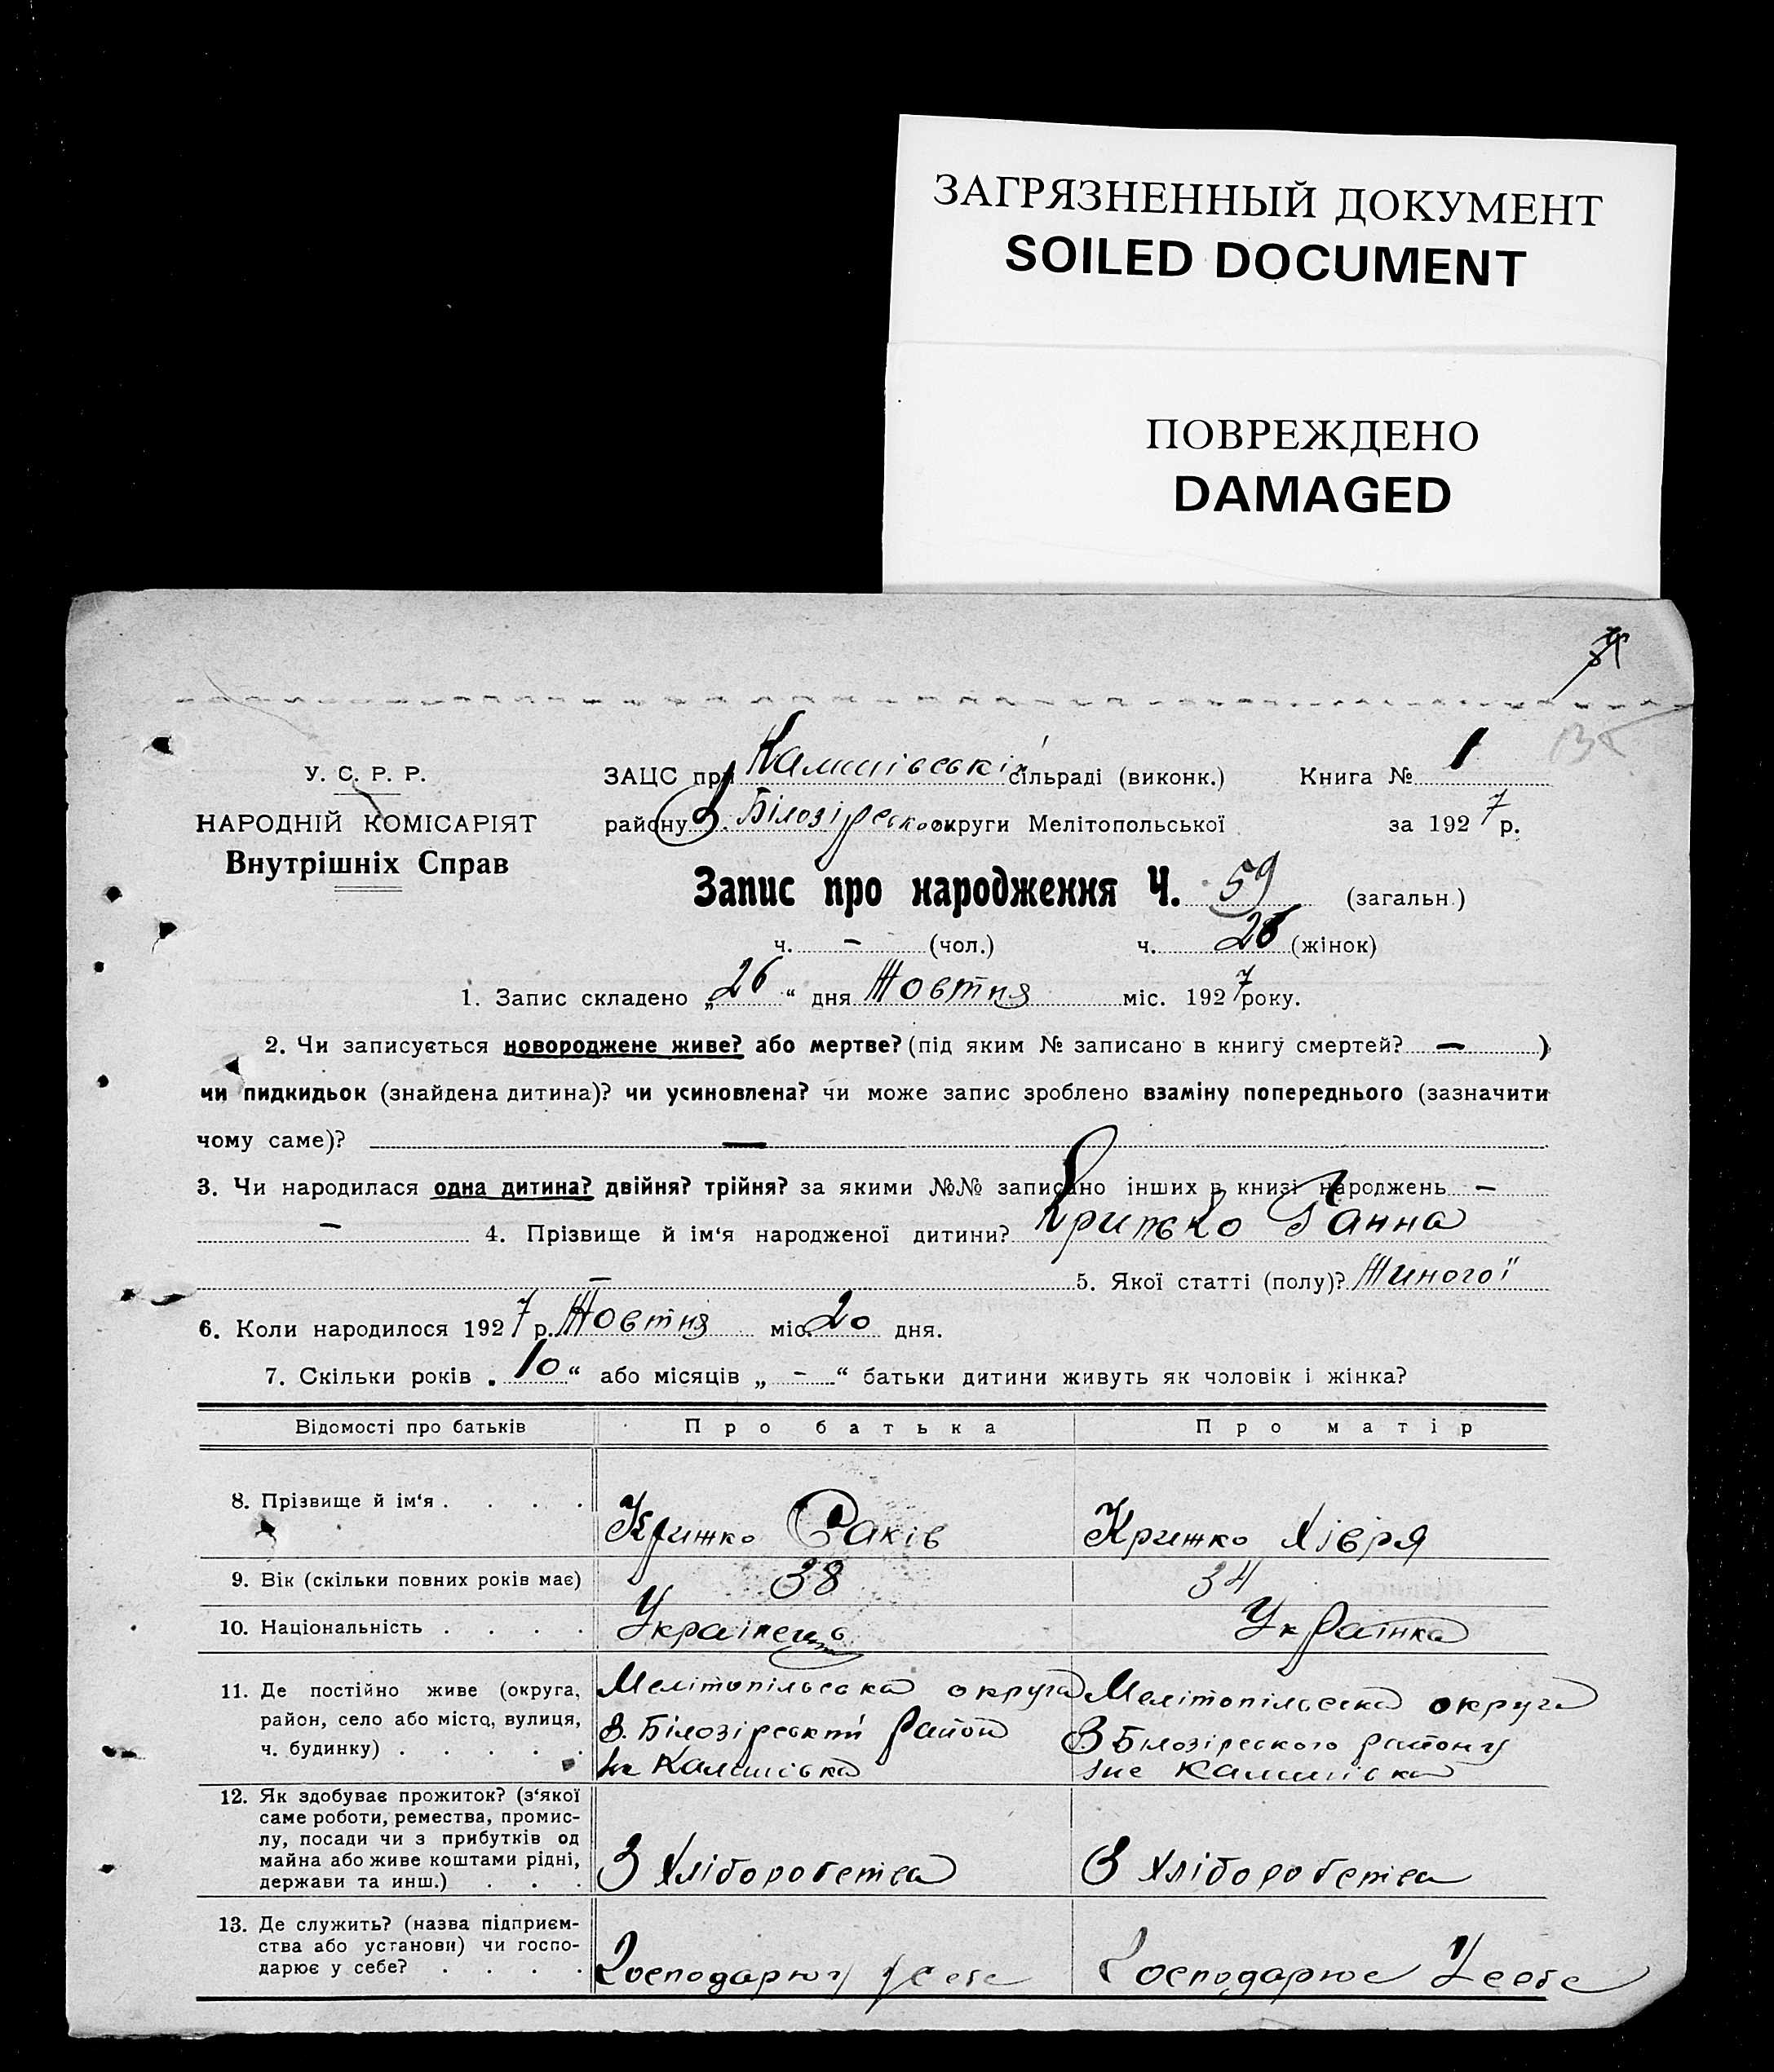 ЗАГРЯЗНЕННЫЙ ДОКУМЕНТ
SOILED DOCUMENT
ПОВРЕЖДЕНО
DAMAGED
У. С. Р. Р.
НАРОДНІЙ КОМІСАРІЯТ
Внутрішніх Справ
ЗАЦС при сільраді (виконк.) Книга № 1
району В. Білозірсько округи Мелітопольської за 1927 р.
Запис про народження Ч. 59 (загальн.)
ч. — (чол.) ч. 26 (жінок)
1. Запис складено „26“ дня Жовтня міс. 1927 року.
2. Чи записується новороджене живе? або мертве? (під яким № записано в книгу смертей? — )
чи пидкидьок (знайдена дитина)? чи усиновлена? чи може запис зроблено взаміну попереднього (зазначити
чому саме)? —
3. Чи народилася одна дитина? двійня? трійня? за якими №№ записано інших в книзі народжень —
— 4. Прізвище й ім‘я народженої дитини? Крижко Ганна
— 5. Якої статті (полу)? Жиночої
6. Коли народилося 1927 р. Жовтня міс. 20 дня.
7. Скільки років „10“ або місяців „ - “ батьки дитини живуть як чоловік і жінка?
Відомості про батьків Про батька Про матір
8. Прізвище й ім‘я . . . . Крижко Яків Крижко Хівря
9. Вік (скільки повних років має) 38 34
10. Національність . . . . Українець Українка
11. Де постійно живе (округа, Мелітопільська округа Мелітопільська округа
район, село або місто, вулиця, В. Білозірський район В Білозірського району
ч. будинку) . . . . .
12. Як здобуває прожиток? (з‘якої
саме роботи, ремества, промис-
лу, посади чи з прибутків од
майна або живе коштами рідні, З Хліборобства З Хліборобства
держави та инш.) . . .
13. Де служить? (назва підприєм-
ства або установи) чи госпо-
дарює у себе? . . . . Господарює у себе Господарює У себе